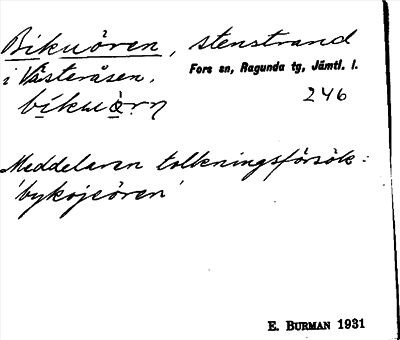 Bikuören, stenstrand
i Västeråsen. Fors sn, Ragunda tg, Jämtl. l.
bikuòrn 246
Meddelaren tolkningsförsök:
'bykojeören'
E. BURMAN 1931